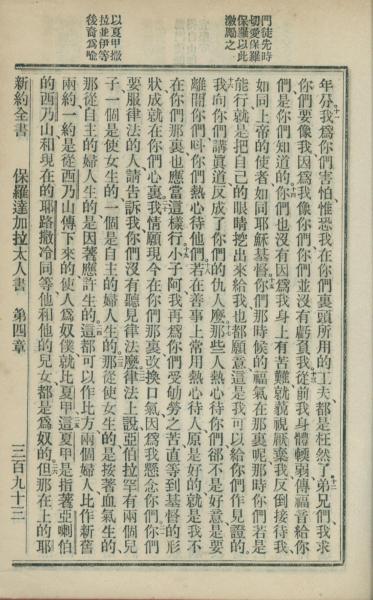 門徒先時
切愛保羅
保羅以此
激勵之
以夏甲撒
拉並伊等
後裔為喻
年分我爲你們害怕惟恐我在你們裏頭所用的工夫都是枉然了弟兄們我求
你們要像我因爲我像你們你們並沒有虧負我從前我身體輭弱傳福音給你
們是你們知道的你們也沒有因爲我身上有苦難就藐視厭棄我反倒接待我
如同上帝的使者如同耶穌基督你們那時候的福氣在那裏呢那時你們若是
能行就是把自己的眼睛挖出來給我也都願意這是我可以給你們作見證的
我向你們講眞道反成了你們的仇人麽那些人熱心待你們郤不是好意是要
離開你們呌你們熱心待他們若在善事上常用熱心待人原是好的就是我不
在你們那裏也應當這樣行小子阿我再爲你們受劬勞之苦直等到基督的形
狀成就在你們心裏我情願現今在你們那裏改換口氣因爲我懸念你們你們
要服律法的人請告訴我你們沒有聽見律法麽律法上說亞伯拉罕有兩個兒
子一個是使女生的一個是自主的婦人生的那從使女生的是按著血氣生的
那從自主的婦人生的是因著應許生的這都可以作比方兩個婦人比作新舊
兩約一約是從西乃山傳下來的使人爲奴僕就比夏甲這夏甲是指著亞喇伯
的西乃山和現在的耶路撒冷同等他和他的兒女都是爲奴的但那在上的耶
新約全書 保羅達加拉太人書 第四章 三百九十三